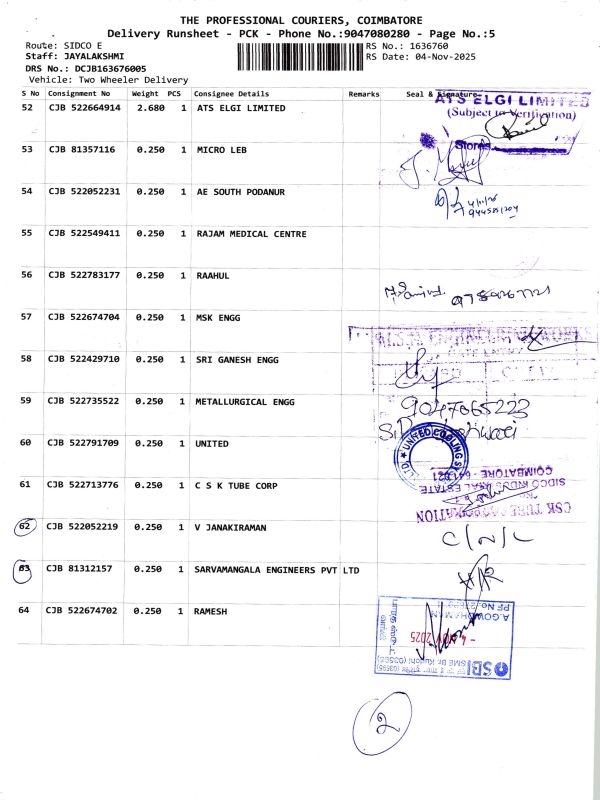 THE PROFESSIONAL COURIERS, COIMBATORE
Delivery Runsheet - PCK - Phone No.:9047080280 - Page No.:5
Route: SIDCO E
RS No.: 1636760
Staff: JAYALAKSHMI
RS Date: 04-Nov-2025
DRS No.: DCJB163676005
Vehicle: Two Wheeler Delivery
S No Consignment No Weight PCS Consignee Details Remarks Seal & Signature
52 CJB 522664914 2.680 1 ATS ELGI LIMITED
ATS ELGI LIMITED
(Subject to Verification)
Stores
53 CJB 81357116 0.250 1 MICRO LEB
54 CJB 522052231 0.250 1 AE SOUTH PODANUR
55 CJB 522549411 0.250 1 RAJAM MEDICAL CENTRE
56 CJB 522783177 0.250 1 RAAHUL
57 CJB 522674704 0.250 1 MSK ENGG
58 CJB 522429710 0.250 1 SRI GANESH ENGG
59 CJB 522735522 0.250 1 METALLURGICAL ENGG
9047065223
60 CJB 522791709 0.250 1 UNITED
UNITED COOLING
61 CJB 522713776 0.250 1 C S K TUBE CORP
COIMBATORE - 641 021
SIDCO INDUSTRIAL ESTATE
CSK TUBE CORPORATION
62 CJB 522052219 0.250 1 V JANAKIRAMAN
C/N/L
63 CJB 81312157 0.250 1 SARVAMANGALA ENGINEERS PVT LTD
64 CJB 522674702 0.250 1 RAMESH
- 4 NOV 2025
SBI
2